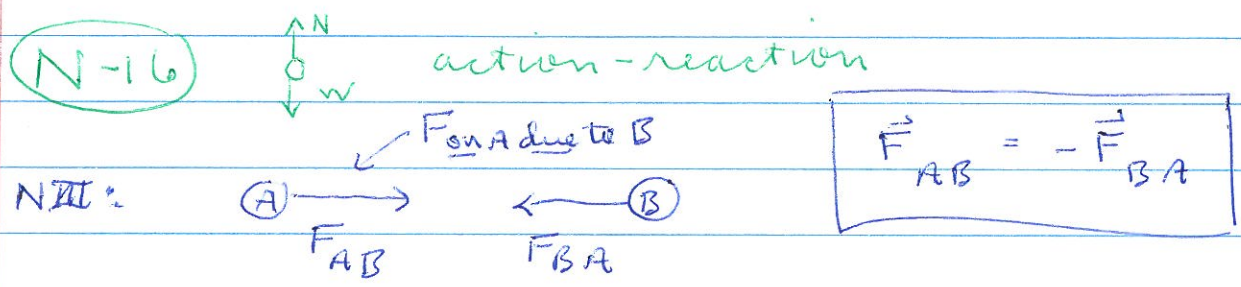 N-16 N action-reaction
W
F on A due to B
NIII: A B
F AB F BA
F⃗ AB = - F⃗ BA